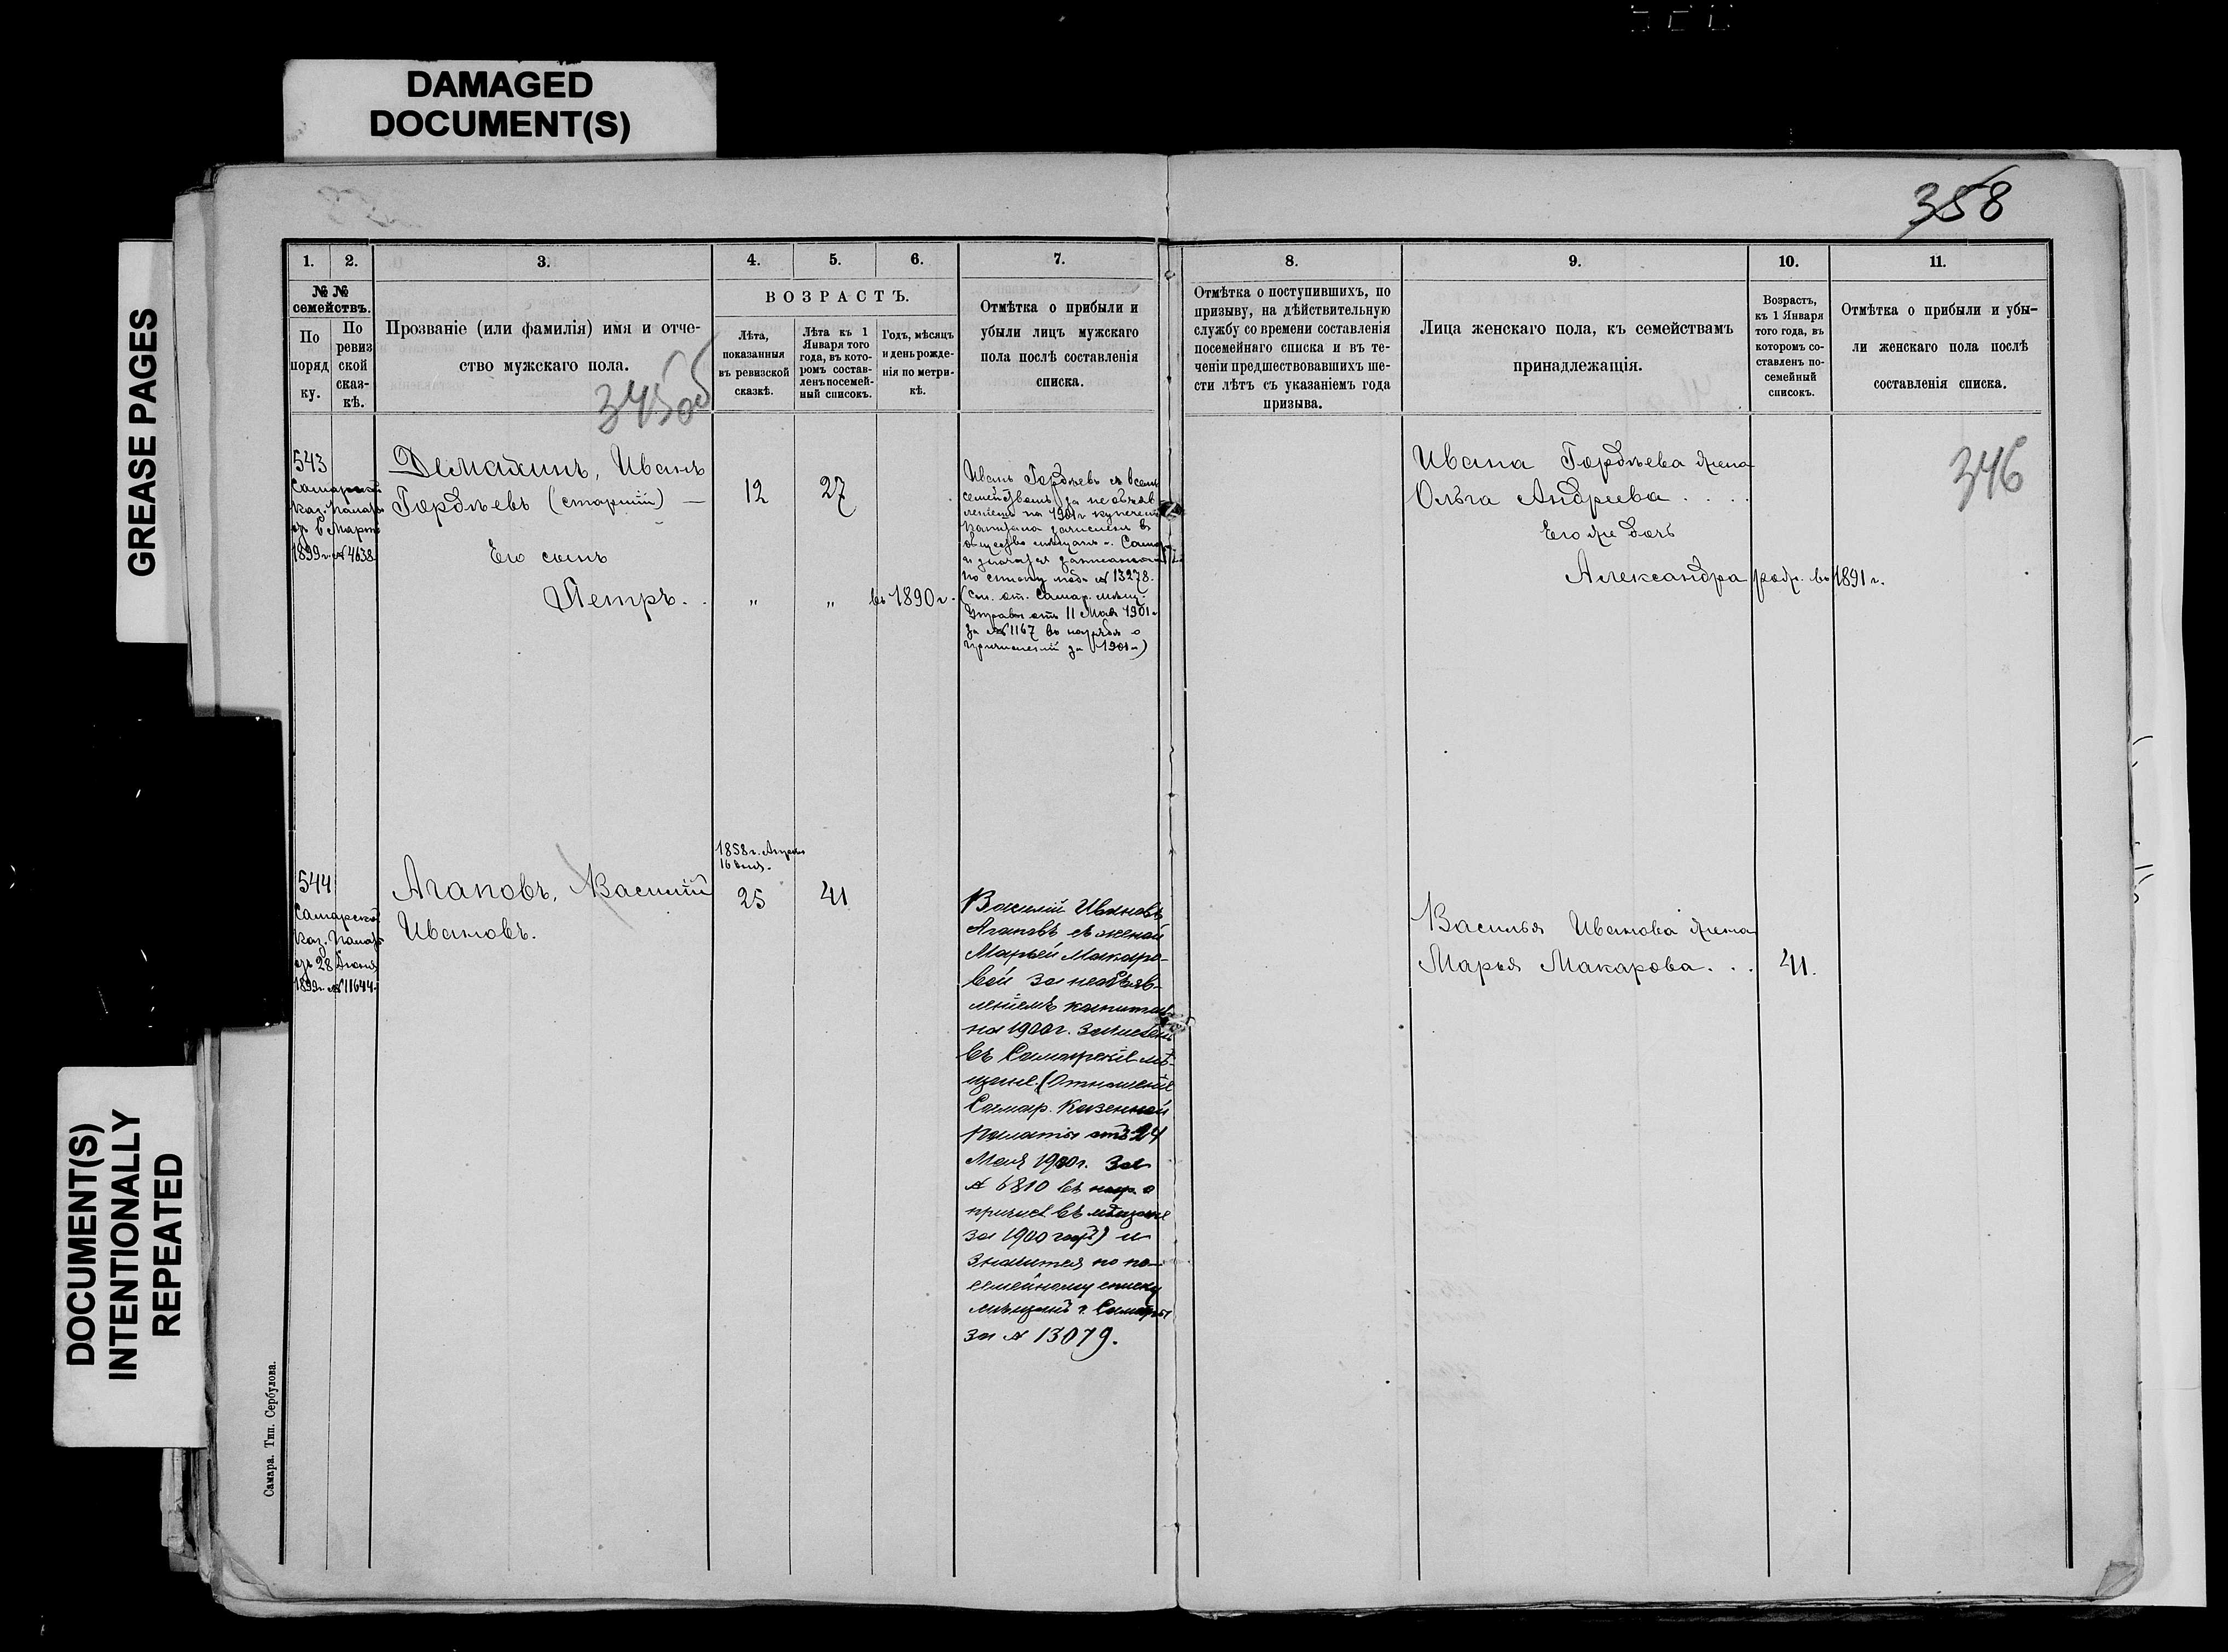 DAMAGED
DOCUMENT(S)
GREASE PAGES
DOCUMENT(S)
INTENTIONALLY
REPEATED
358
1.
2.
3.
4.
5.
6.
7.
№ №
семействъ.
По
поряд
ку.
По
ревиз
ской
сказ-
кѣ.
Прозваніе (или фамилія) имя и отче-
ство мужскаго пола.
345 об
ВОЗРАСТЪ.
Лѣта,
показанныя
въ ревизской
сказкѣ.
Лѣта къ 1
Января того
года, въ кото-
ромъ состав-
ленъ посемей-
ный список.
Годъ, мѣсяцъ
и день рожде-
нія по метри-
кѣ.
Отмѣтка о прибыли и
убыли лицъ мужскаго
пола послѣ составленія
списка.
8.
9.
10.
11.
Отмѣтка о поступившихъ, по
призыву, на дѣйствительную
службу со времени составленія
посемейнаго списка и въ те-
ченіи предшествовавшихъ ше-
сти лѣтъ съ указаніемъ года
призыва.
Лица женскаго пола, къ семействамъ
принадлежащія.
Возрастъ,
къ 1 Января
того года, въ
которомъ со-
ставленъ по-
семейный
списокъ.
Отмѣтка о прибыли и убы-
ли женскаго пола послѣ
составленія списка.
346
543
Самарской
Каз. Палаты
6 Марта
1899 г. № 4638
Демахинъ, Иванъ
Гордѣевъ (старшій) —
12
27
Его сынъ
Петръ.
„
„
въ 1890 г.
Иванъ Гордѣевъ съ всем
семействомъ за необъяв
леніемъ на 1901 г купечес
Капитала зачисленъ въ
общество мѣщанъ г. Самар
и значатся
по списку подъ № 13278.
(Сп. от. Самар. Мѣщ.
Управы отъ 11 Мая 1901 г
за № 1167 въ нарядѣ о
причисленіи за 1901 г.)
Ивана Гордѣева жена
Ольга Андреева . . . .
Его же дочь
Александра род. въ 1891 г.
544
Самарской
Каз. Палаты
28 Іюня
1899 г. № 11644.
Агаповъ, Василій
Ивановъ.
1858 г. Апреля
16 дня.
25
41
Василій Ивановъ
Агаповъ съ женой
Марьей Макаро-
вой за необъяв-
леніемъ капитал
на 1900 г. зачисленъ
въ Самарскіе мѣ-
щане. (Отношеніе
Самар. Казенной
Палаты отъ 24
Мая 1900 г. за
№ 6810 въ нар. о
причис въ мѣщане
за 1900 годъ) и
значится по по-
семейному списку
мѣщанъ г. Самары
за № 13079.
Василья Иванова жена
Марья Макарова. . .
41.
Самара. Тип. Сербулова.